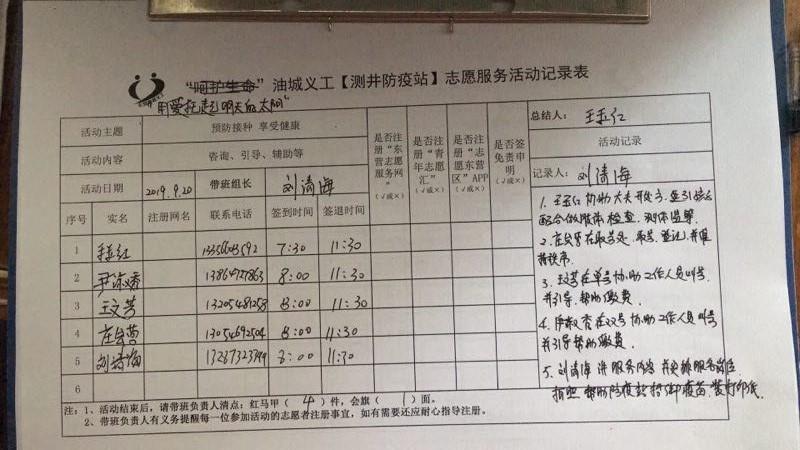 “呵护生命” 油城义工【测井防疫站】志愿服务活动记录表
用爱托起明天的太阳”
活动主题 预防接种 享受健康
活动内容 咨询、引导、辅助等
活动日期 2019.9.20 带班组长 刘清海
是否注册“东营志愿服务网”（√或×）
是否注册“青年志愿汇”（√或×）
是否注册“志愿东营区”APP（√或×）
是否签免责申明（√或×）
序号 实名 注册网名 联系电话 签到时间 签退时间
1 7:30 11:30
2 13864727863 8:00 11:30
3 王文芳 13205481258 8:00 11:30
4 13054692504 8:00 11:30
5 刘清海 8:00 11:30
6
总结人： 王玉红
活动记录
记录人： 刘清海
1. 王玉红 协助大夫开处方,
配合做肢体检查.
2. 在取苗处 登记,并
3. 王文芳在单号协助工作人员叫号
并引导.帮助缴费.
4. 在双号协助工作人员叫号
并引导帮助缴费.
5. 刘清海 服务内容 服务岗位
拍照 帮助防疫站
注：1、活动结束后，请带班负责人清点：红马甲（ 4 ）件，会旗（ 1 ）面。
2、带班负责人有义务提醒每一位参加活动的志愿者注册事宜，如有需要还应耐心指导注册。